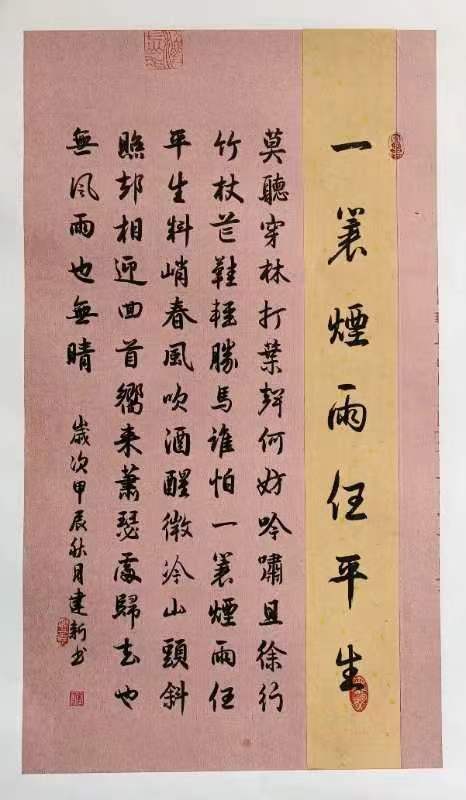 一蓑煙雨任平生
莫聽穿林打葉聲何妨吟嘯且徐行
竹杖芒鞋輕勝馬誰怕一蓑煙雨任
平生料峭春風吹酒醒微冷山頭斜
照却相迎回首嚮来蕭瑟處歸去也
無風雨也無晴
歲次甲辰秋月建新書